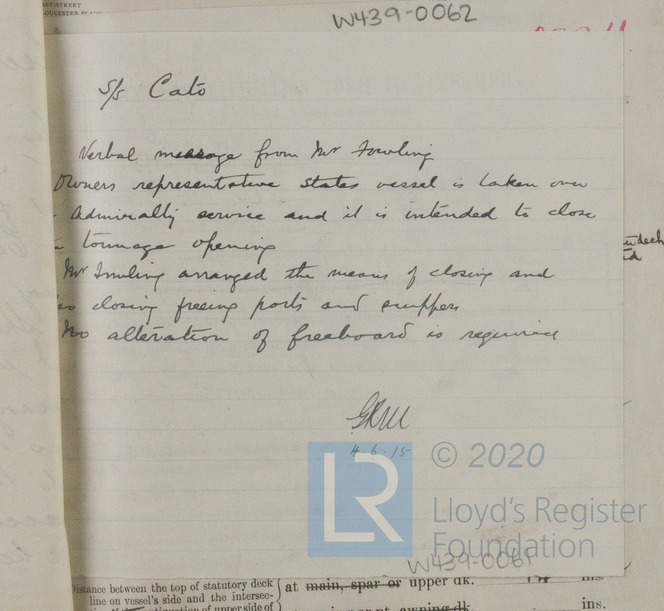 W439-0062
S/S Cato
Verbal message from Mr Fowling
Owners representative states vessel is taken over
Admiralty service and it is intended to close
tonnage opening
Mr Fowling arranged the means of closing and
closing freeing ports and scuppers
No alteration of freeboard is required
4.6.15
© 2020
LR
Lloyd's Register
Foundation
W439-0061
Distance between the top of statutory deck
line on vessel's side and the intersec-
at main, spar or upper dk.
ins.
awning dk.
ins.